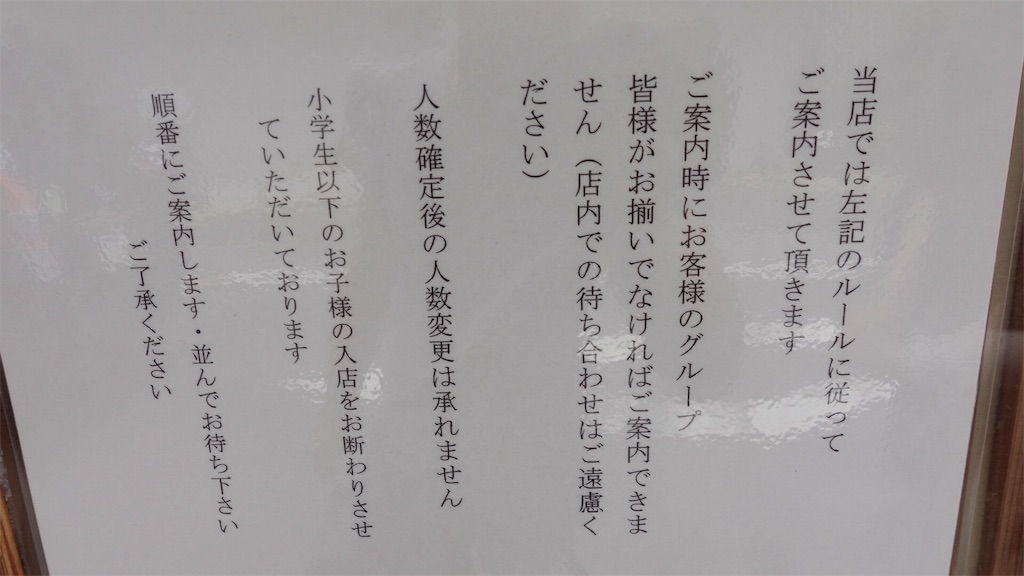 当店では左記のルールに従って
ご案内させて頂きます
ご案内時にお客様のグループ
皆様がお揃いでなければご案内できま
せん（店内での待ち合わせはご遠慮く
ださい）
人数確定後の人数変更は承れません
小学生以下のお子様の入店をお断わりさせ
ていただいております
順番にご案内します・並んでお待ち下さい
ご了承ください